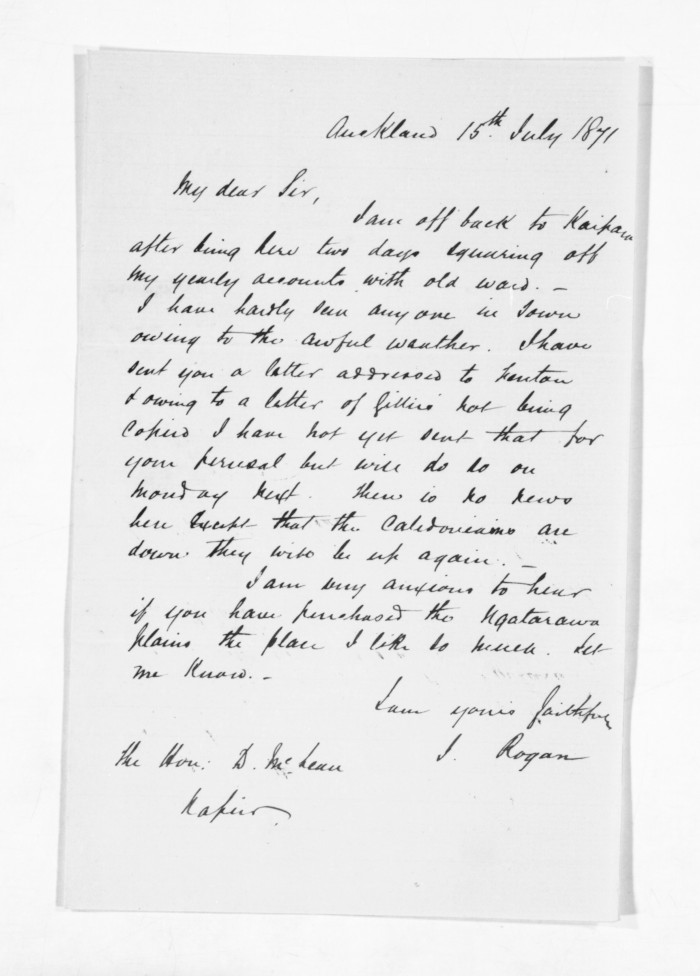 Auckland 15th July 1871
My dear Sir,
I am off back to Kaipara
after being here two days squaring off
my yearly accounts with old ward. -
I have hardly seen anyone in Town
owing to the awful weather. I have
sent you a letter addressed to Fenton
& owing to a letter of Gillies not being
copied I have not yet sent that for
your perusal but will do so on
Monday next. There is no news
here Except that the Caledonians are
down they will be up again. -
I am very anxious to hear
if you have purchased the Ngatarawa
plains the place I like so much. Let
me know. -
I am yours faithfully
J. Rogan
The Hon: D. McLean
Napier